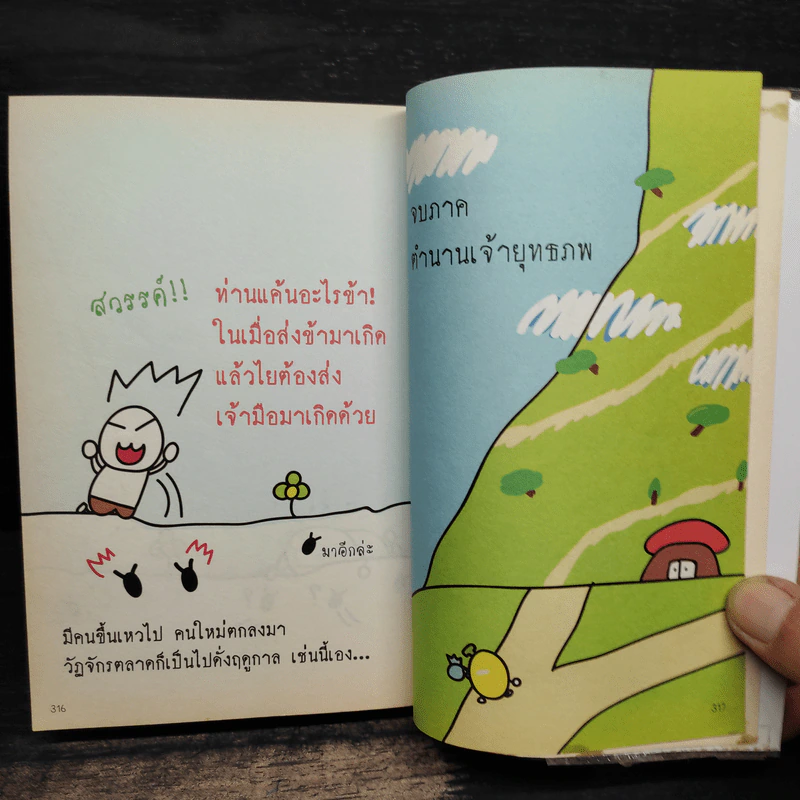 สวรรค์!!
ท่านแค้นอะไรข้า!
ในเมื่อส่งข้ามาเกิด
แล้วไยต้องส่ง
เจ้ามือมาเกิดด้วย
มาอีกล่ะ
มีคนขึ้นเหวไป คนใหม่ตกลงมา
วัฏจักรตลาดก็เป็นไปดั่งฤดูกาล เช่นนี้เอง...
316
จบภาค
ตำนานเจ้ายุทธภพ
317